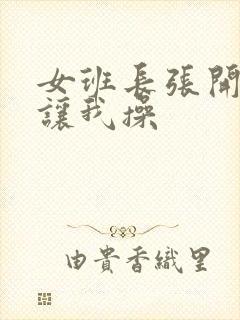 女班长張開
讓我操
由貴香織里